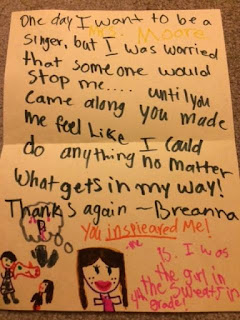 One day I want to be a
Mrs. Moore
singer, but I was worried
that someone would
stop me.... until you
came along you made
me feel like I could
do anything no matter
what gets in my way!
Thanks again ~Breanna
You inspieared Me!
me
P.S. I was
the girl in
the sweats in
grade!